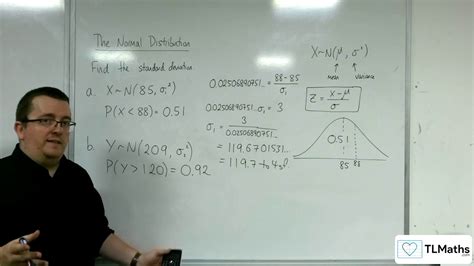 The Normal Distribution
Find the standard deviation
a. X~N(85, σ₁²)
P(X < 88) = 0.51
b. Y~N(209, σ₂²)
P(Y > 120) = 0.92
0.02506890751... = 88-85 / σ₁
0.02506890751... σ₁ = 3
σ₁ = 3 / 0.02506890751...
= 119.6701531...
= 119.7 to 4sf
X~N(μ, σ²)
mean variance
Z = x-μ / σ
0.51
85 88
TLMaths